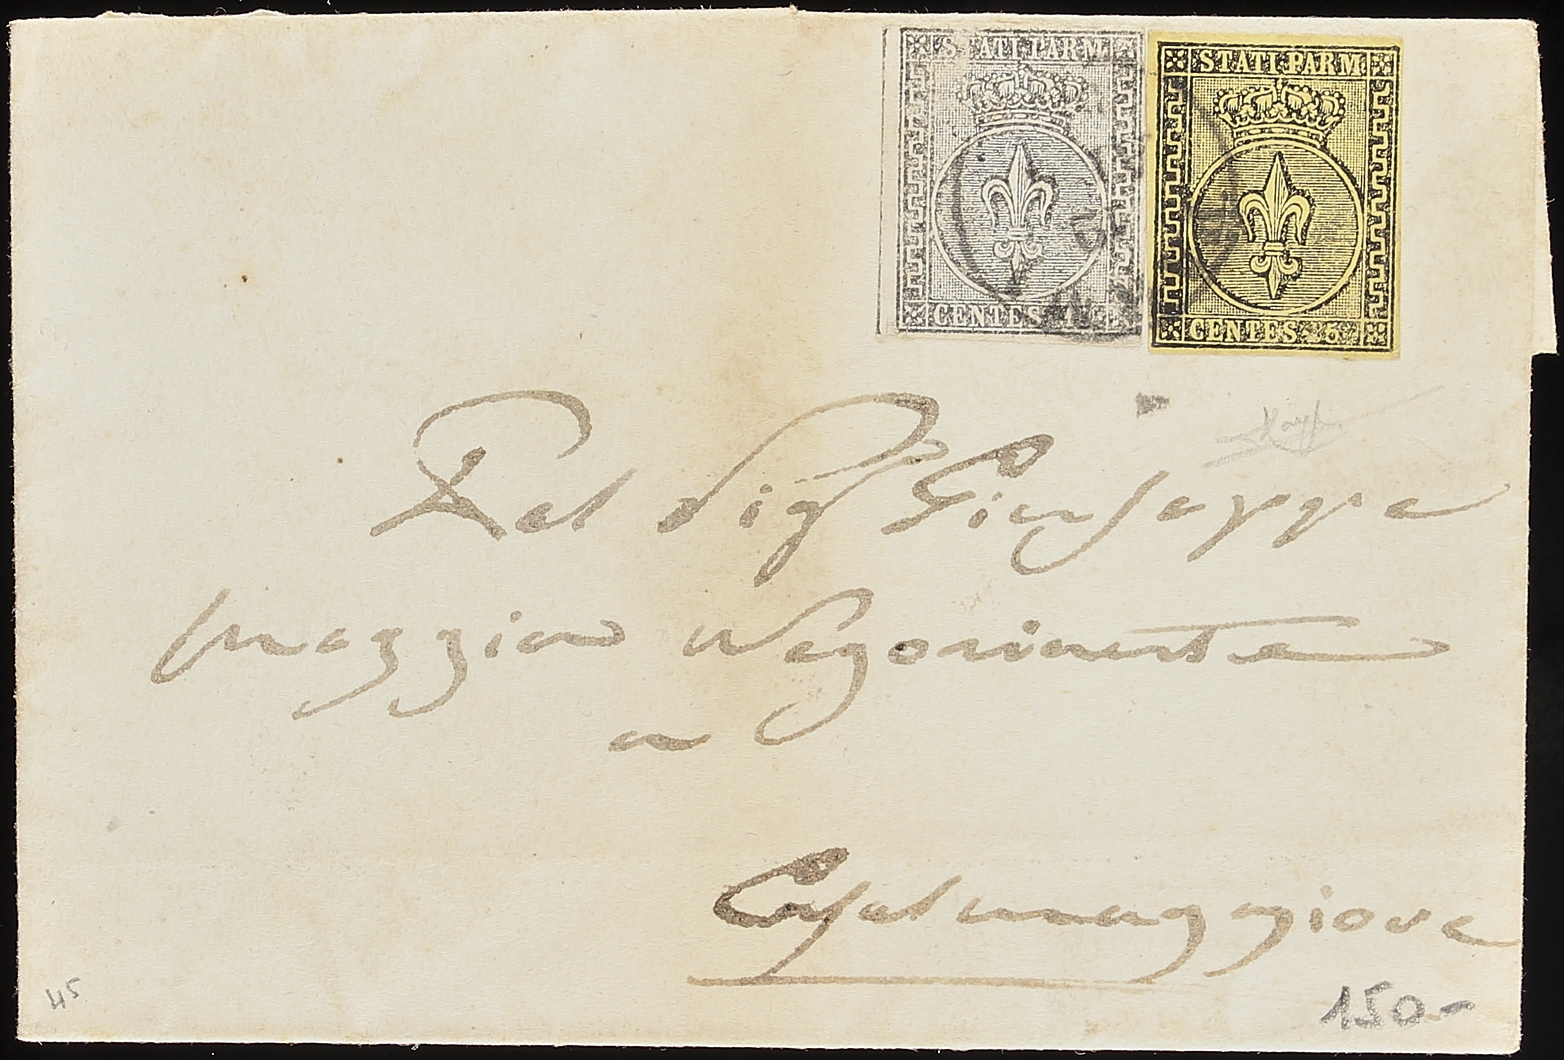 STATI PARM
CENTES. 10
STATI PARM
CENTES. 5
Sig.r Giuseppe
Maggio Negoziante
a
Casalmaggiore
45
150-